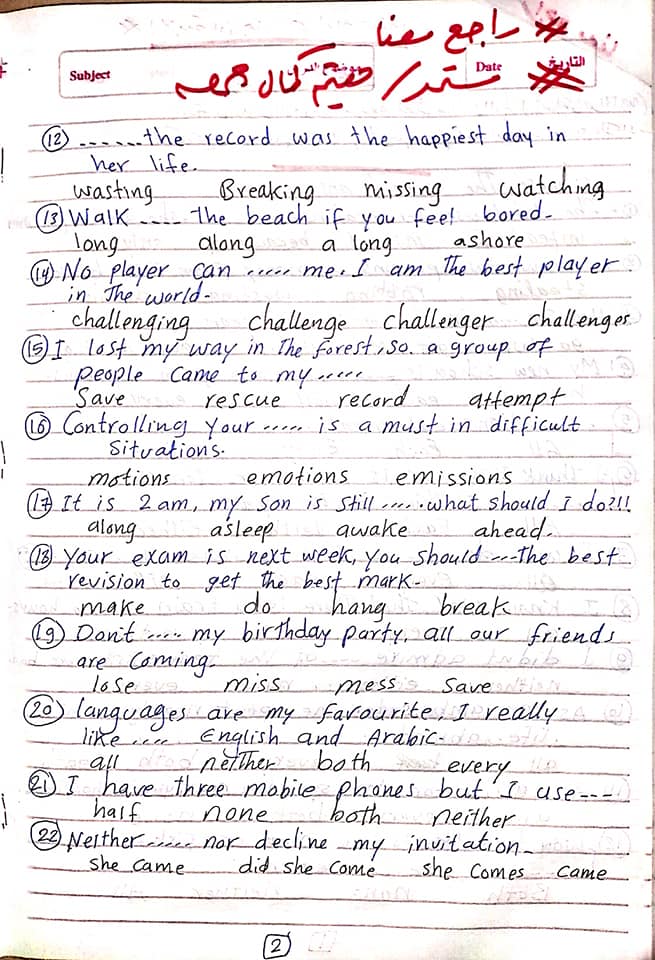 # راجع معنا
Subject
Date
التاريخ
مستر/ هيثم كمال جمعه
(12) ......the record was the happiest day in
her life.
wasting Breaking missing watching
(13) Walk .... the beach if you feel bored-
long along a long ashore
(14) No player can ..... me. I am the best player
in the world-
challenging challenge challenger challenges
(15) I lost my way in the forest, so. a group of
people came to my .....
Save rescue record attempt
(16) Controlling your ..... is a must in difficult
situations.
motions emotions emissions
(17) It is 2 am, my son is still ..... what should I do?!!!
along asleep awake ahead.
(18) Your exam is next week, you should ---the best
revision to get the best mark-
make do hang break
(19) Don't .... my birthday party, all our friends
are coming.
lose miss mess save
(20) languages are my favourite, I really
like .... English and Arabic-
all neither both every
(21) I have three mobile phones but I use ----
half none both neither
(22) Neither ..... nor decline my invitation-
she came did she come she comes came
2